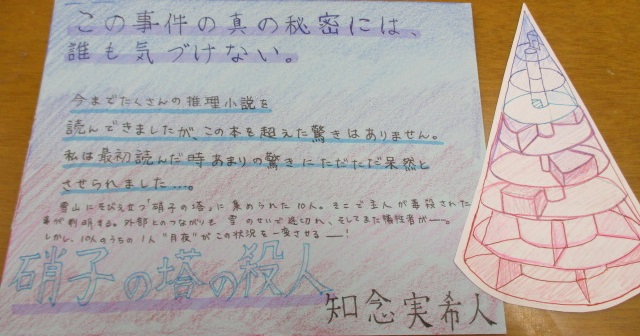 この事件の真の秘密には、
誰も気づけない。
今までたくさんの推理小説を
読んできましたがこの本を超えた驚きはありません。
私は最初読んだ時あまりの驚きにただただ呆然と
させられました…。
雪山にそびえ立つ「硝子の塔」に集められた10人。そこで主人が毒殺された
事が判明する。外部とのつながりも雪のせいで途切れ、そしてまた犠牲者が――。
しかし、10人のうちの1人"月夜"がこの状況を一変させる――!
硝子の塔の殺人
知念実希人